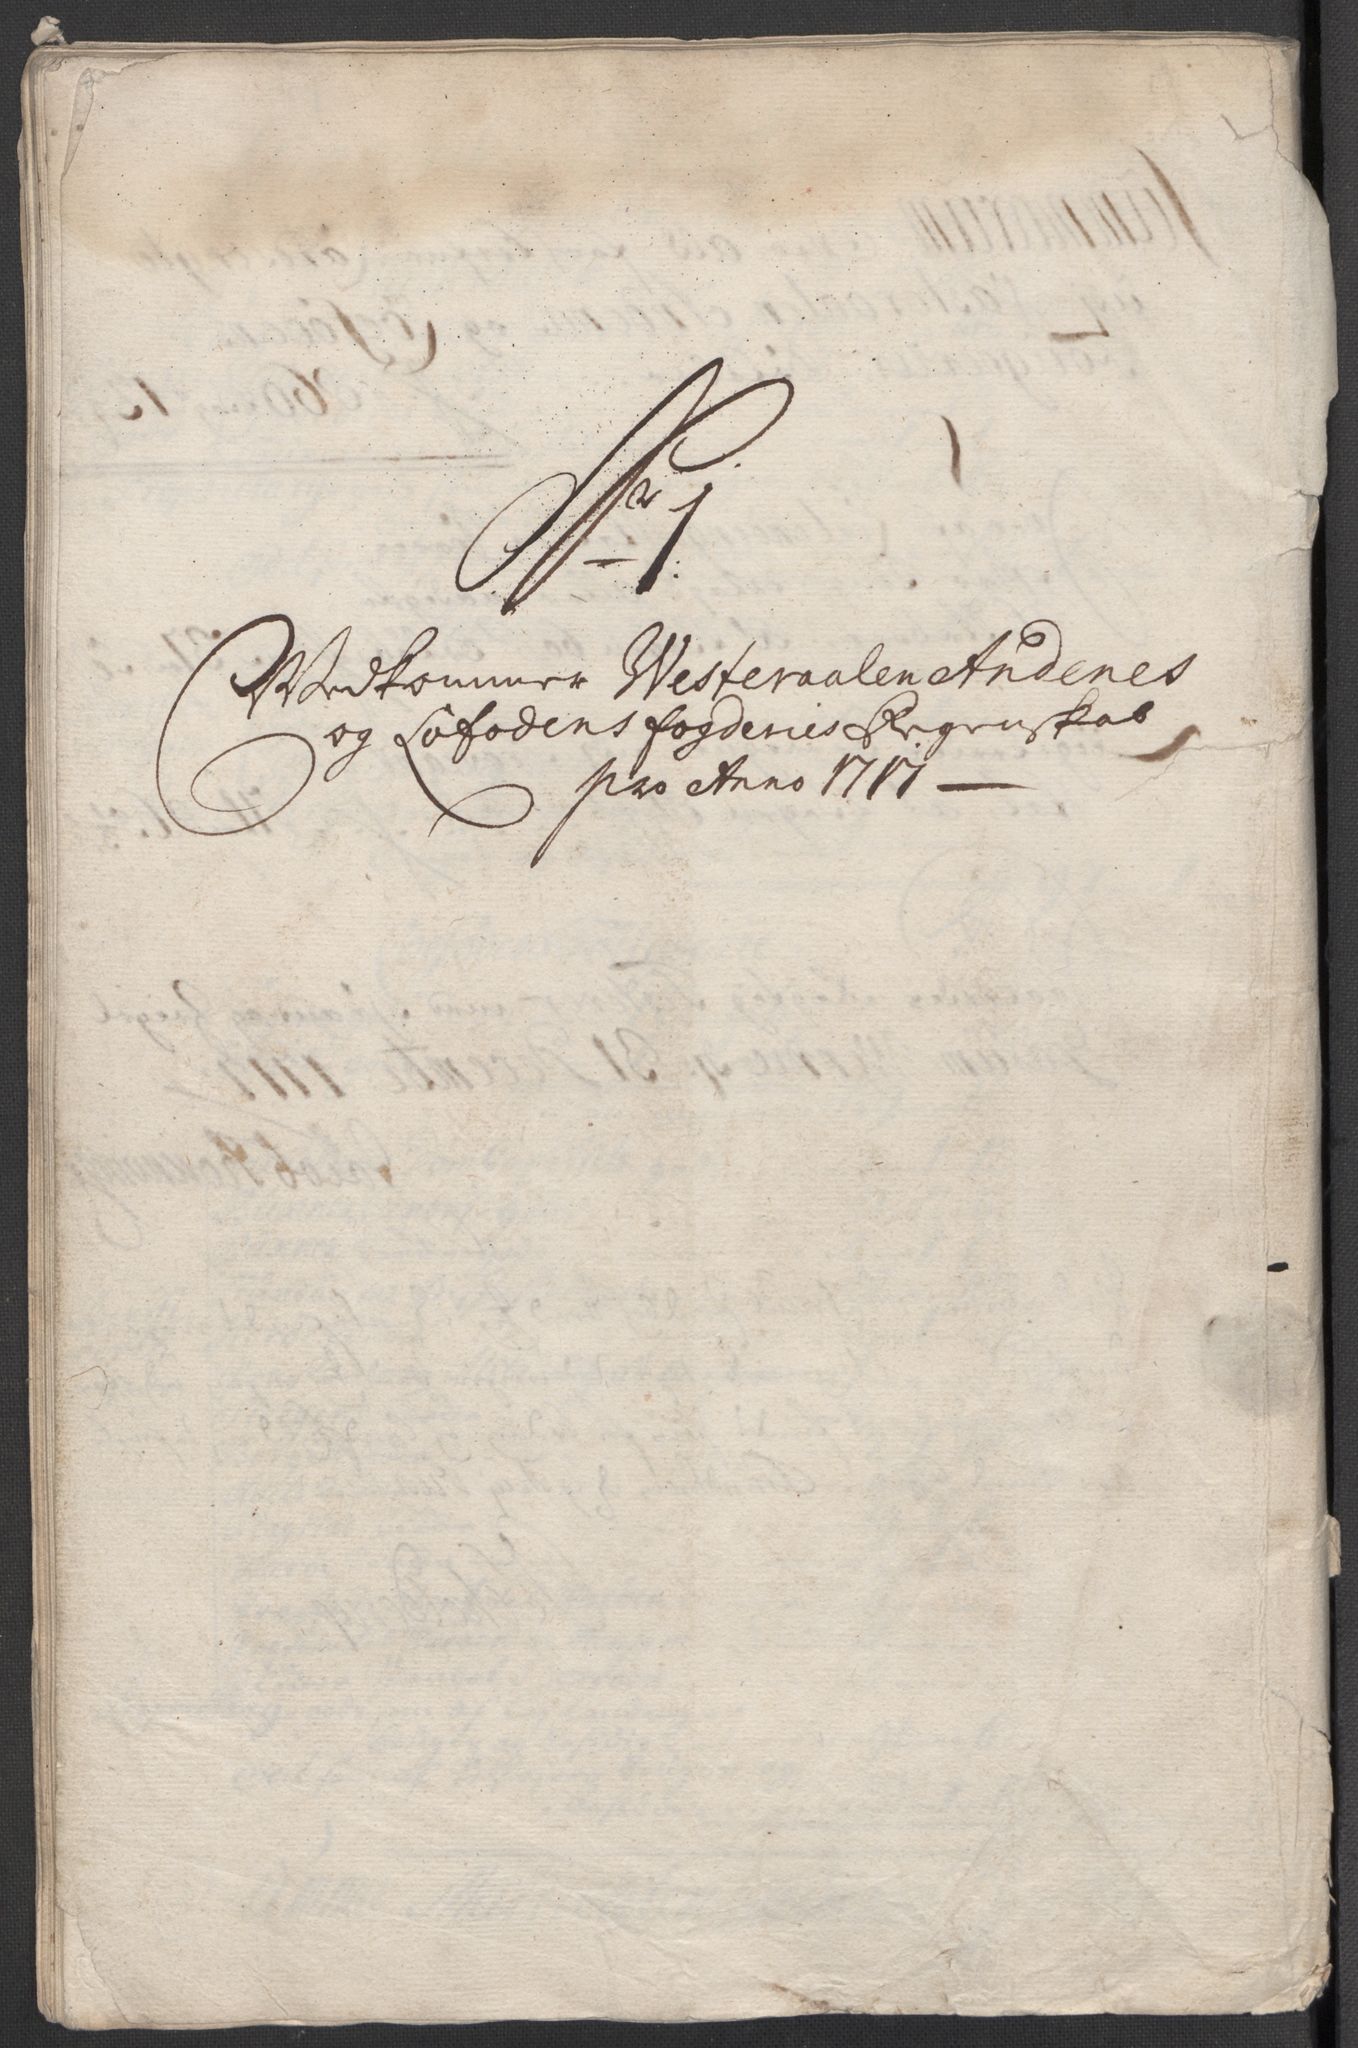 Nr 1.
Vedkommer Westeraalen Andenes
og Lofodens fogderies Regenskab
pro Anno 1717